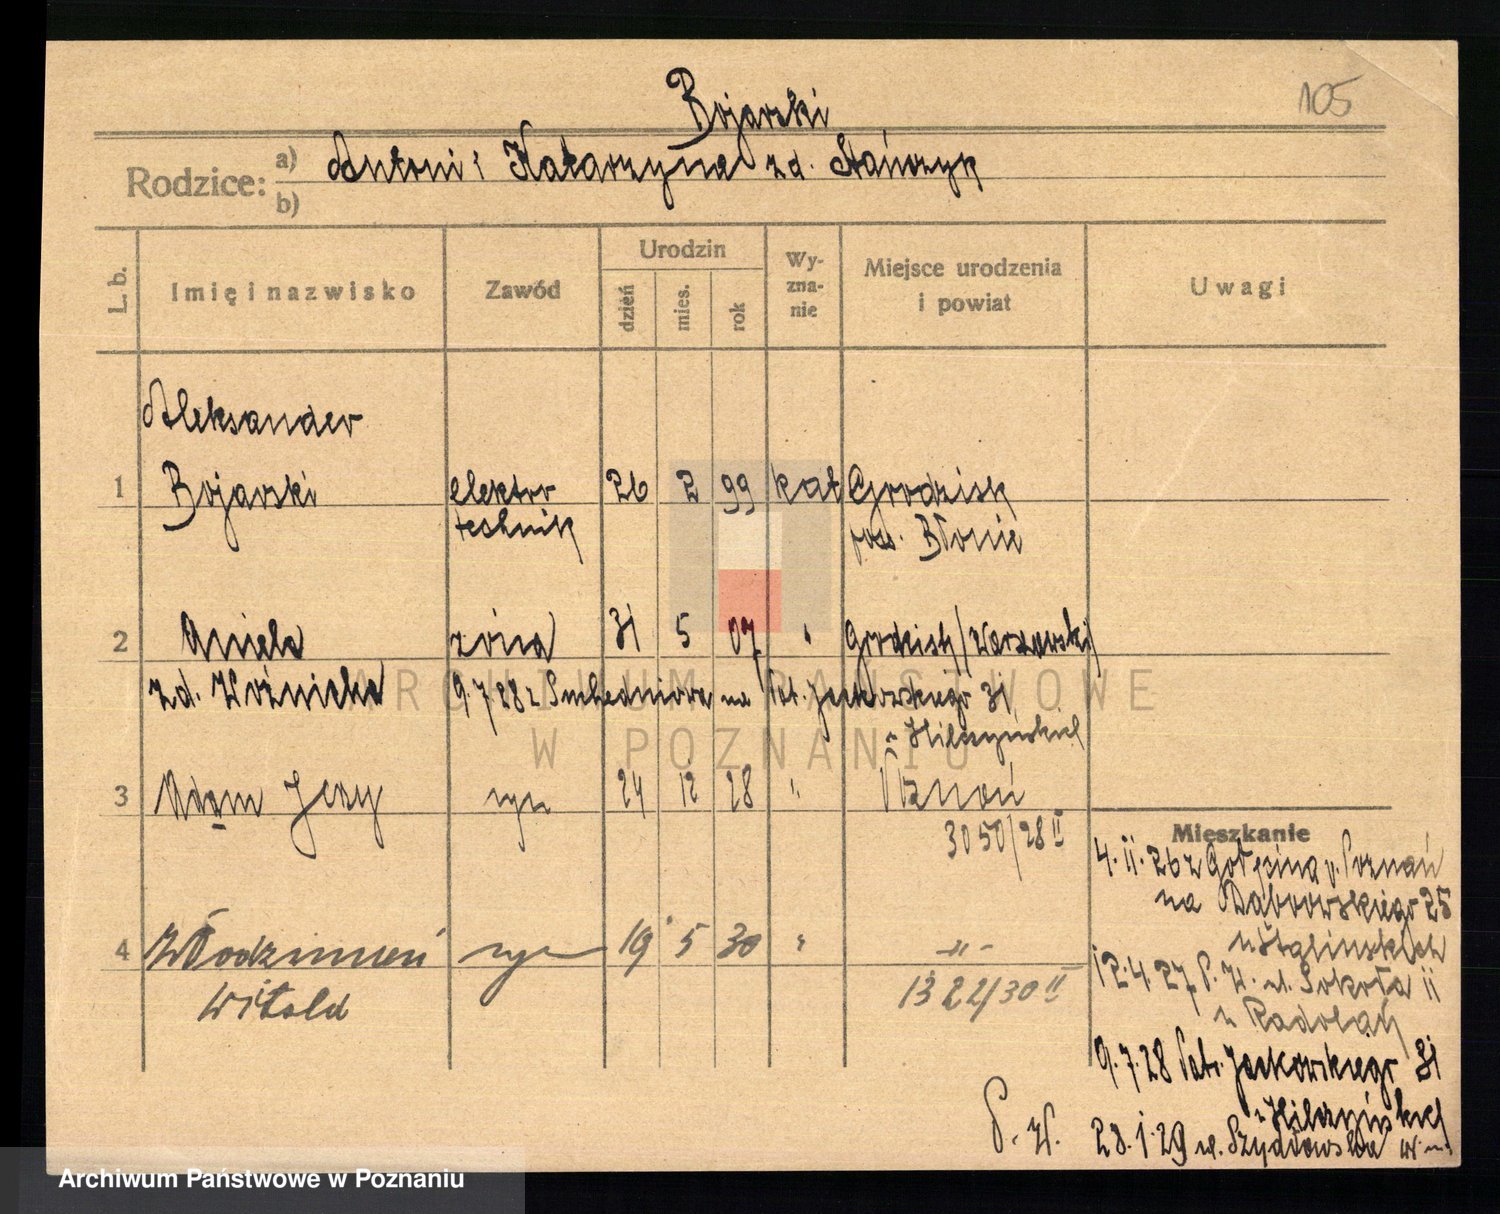 105
Bojarski
Rodzice: a) Antoni i Katarzyna z d. Stańczyk
b)
L. b.
Imię i nazwisko
Zawód
Urodzin
dzień
mies.
rok
Wy-
zna-
nie
Miejsce urodzenia
i powiat
Uwagi
Aleksander
1 Bojarski elektro 26 2 99 kat Grodzisk
technik pow. Błonie
2 Aniela żona 31 5 07 " Grodzisk/Warszawski
zd. Woźnicka 9.7.28 z Suchedniowa na Jackowskiego 31
3 Adam Jerzy syn 24 12 28 " Poznań
3050/28 II
Mieszkanie
4.11.26 z Poznań
na Dąbrowskiego 25
4 Włodzimierz syn 19 5 30 " -"-
Witold 1322/30 II
12.4.27 P. W. ul. Sokoła 11
u
9.7.28 Jackowskiego 31
P. W. 28.1.29 w.
ARCHIWUM PAŃSTWOWE
W POZNANIU
Archiwum Państwowe w Poznaniu